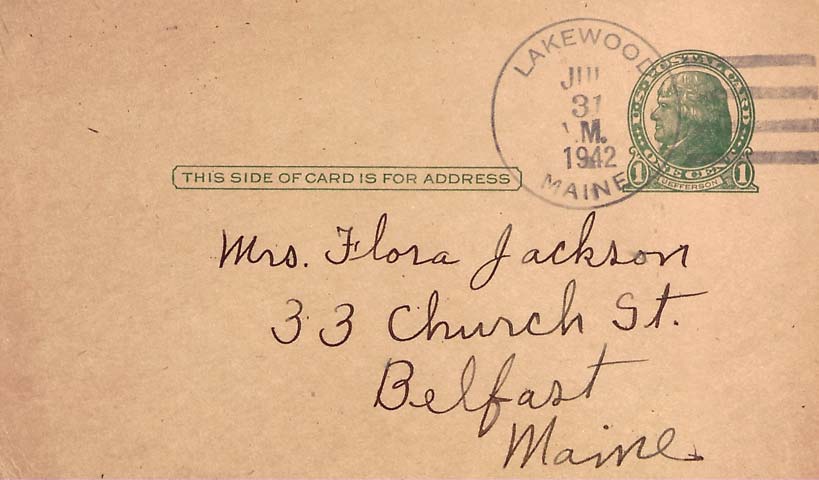 LAKEWOOD
JUL
31
M.
1942
MAINE
U.S. POSTAL CARD
ONE CENT
1 JEFFERSON 1
THIS SIDE OF CARD IS FOR ADDRESS
Mrs. Flora Jackson
33 Church St.
Belfast
Maine